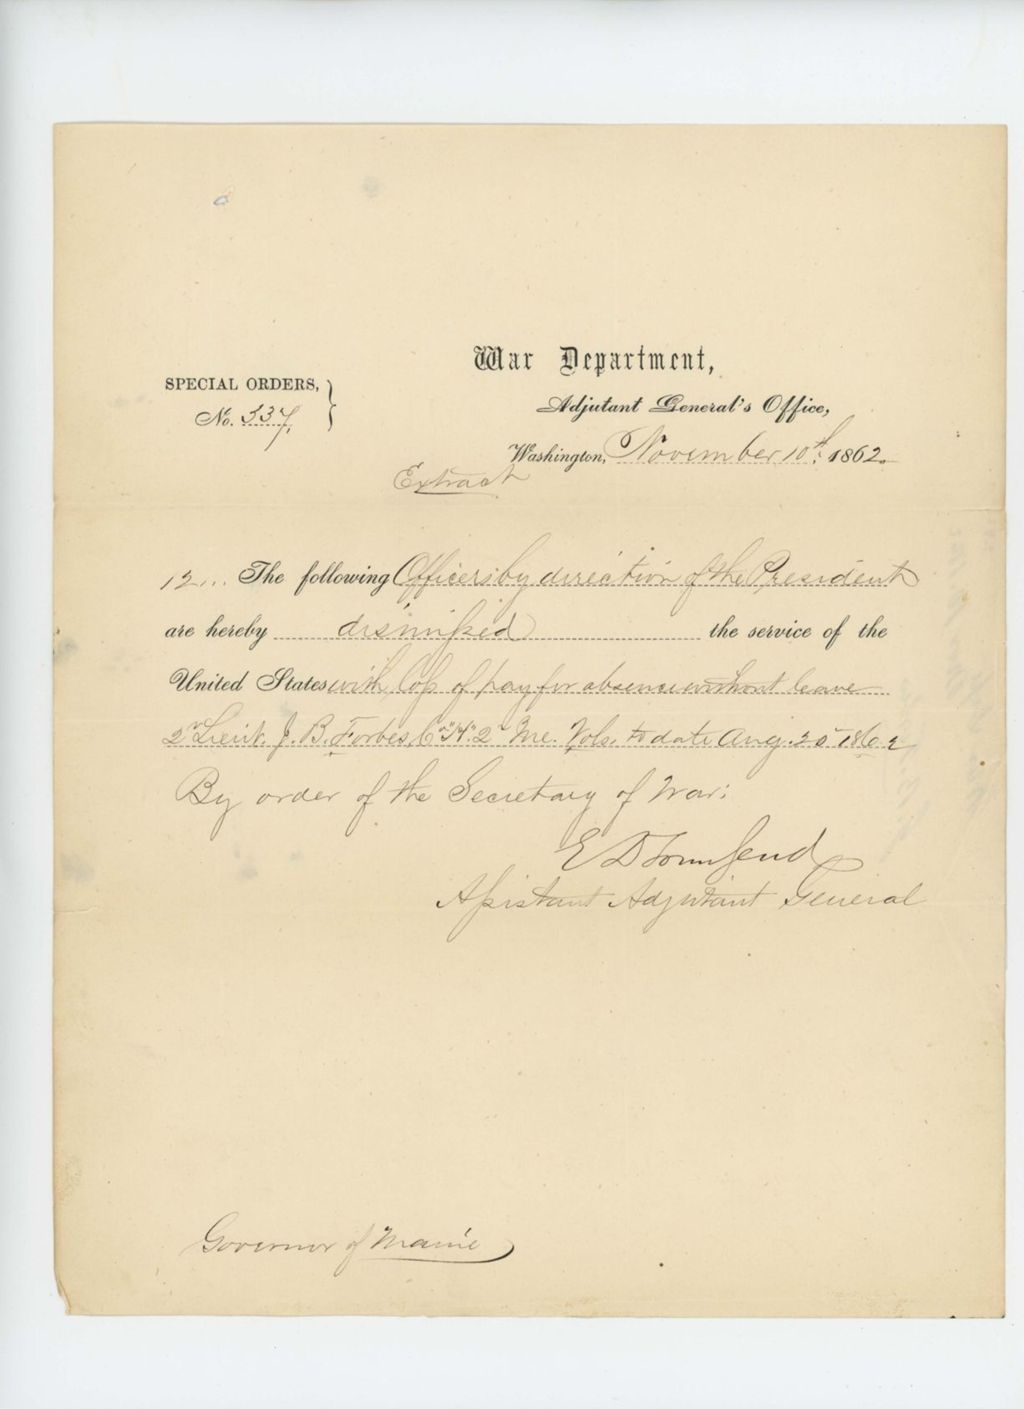 War Department,
SPECIAL ORDERS,
Adjutant General's Office,
No. 337,
Washington, November 10th, 1862.
Extract
12... The following Officers, by direction of the President
are hereby dismissed the service of the
United States with loss of pay for absence without leave
2d Lieut. J. B. Forbes, Co "H" 2d Me. Vols. to date Aug. 20 1862
By order of the Secretary of War:
E D Townsend
Assistant Adjutant General
Governor of Maine